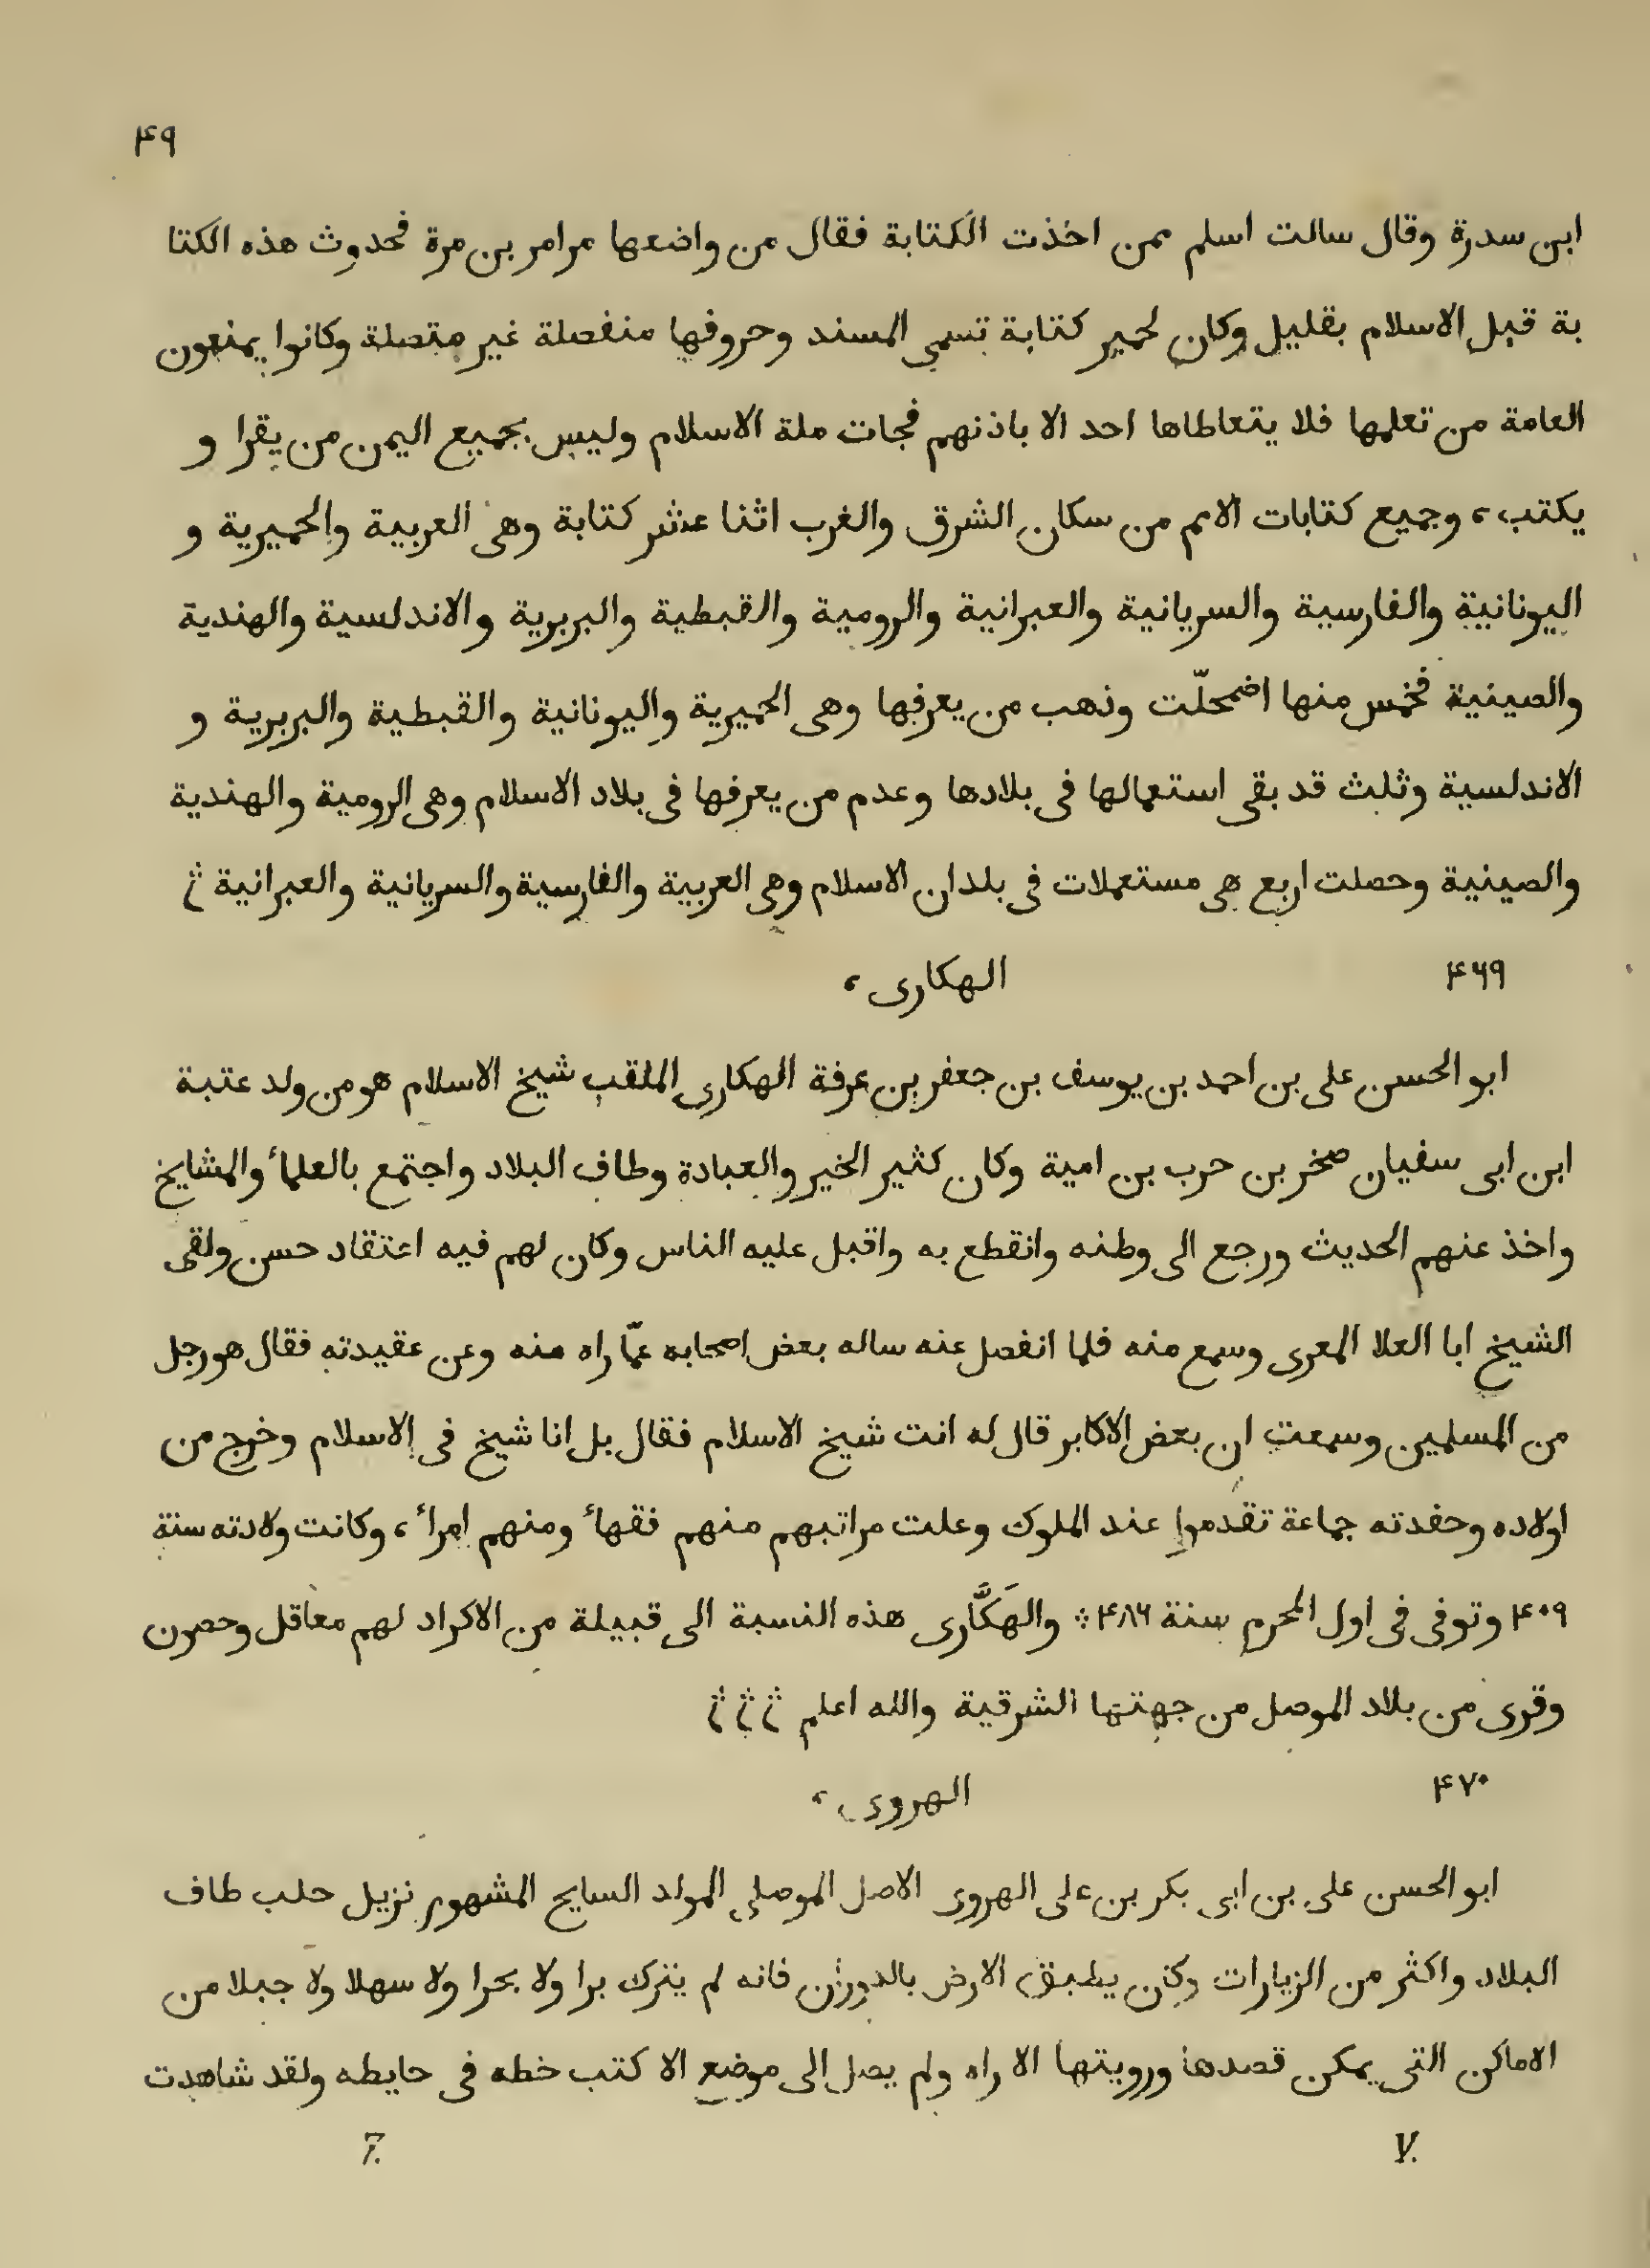 ۴۹
ابن سدرة وقال سالت اسلم ممن اخذت الكتابة فقال من واضعها مرامر بن مرة فحدوث هذه الكتا
بة قبل الاسلام بقليل وكان لحمير كتابة تسمى المسند وحروفها منفصلة غير متصلة وكانوا يمنعون
العامة من تعلمها فلا يتعاطاها احد الا باذنهم فجات ملة الاسلام وليس بجميع اليمن من يقرا و
يكتب ، وجميع كتابات الامم من سكان الشرق والغرب اثنا عشر كتابة وهى العربية والحميرية و
اليونانية والفارسية والسريانية والعبرانية والرومية والقبطية والبربرية والاندلسية والهندية
والصينية فخمس منها اضمحلّت وذهب من يعرفها وهى الحميرية واليونانية والقبطية والبربرية و
الاندلسية وثلث قد بقى استعمالها فى بلادها وعدم من يعرفها فى بلاد الاسلام وهى الرومية والهندية
والصينية وحصلت اربع هى مستعملات فى بلدان الاسلام وهى العربية والفارسية والسريانية والعبرانية
۴۶۹ الهكارى ،
ابو الحسن على بن احمد بن يوسف بن جعفر بن عرفة الهكارى الملقب شيخ الاسلام هو من ولد عتبة
ابن ابى سفيان صخر بن حرب بن امية وكان كثير الخير والعبادة وطاف البلاد واجتمع بالعلمأ والمشايخ
واخذ عنهم الحديث ورجع الى وطنه وانقطع به واقبل عليه الناس وكان لهم فيه اعتقاد حسن ولقى
الشيخ ابا العلا المعرى وسمع منه فلما انفصل عنه ساله بعض اصحابه عمّا راه منه وعن عقيدته فقال هو رجل
من المسلمين وسمعت ان بعض الاكابر قال له انت شيخ الاسلام فقال بل انا شيخ فى الاسلام وخرج من
اولاده وحفدته جماعة تقدموا عند الملوك وعلت مراتبهم منهم فقهأ ومنهم امرأ ، وكانت ولادته سنة
۴۰۹ وتوفى فى اول المحرم سنة ۴۸۶ والهَكَّارى هذه النسبة الى قبيلة من الاكراد لهم معاقل وحصون
وقرى من بلاد الموصل من جهتها الشرقية والله اعلم
۴۷۰ الهروى ،
ابو الحسن على بن ابى بكر بن على الهروى الاصل الموصلى المولد السايح المشهور نزيل حلب طاف
البلاد واكثر من الزيارات وكان يطبق الارض بالدوران فانه لم يترك برا ولا بحرا ولا سهلا ولا جبلا من
الاماكن التى يمكن قصدها ورويتها الا راه ولم يصل الى موضع الا كتب خطه فى حايطه ولقد شاهدت